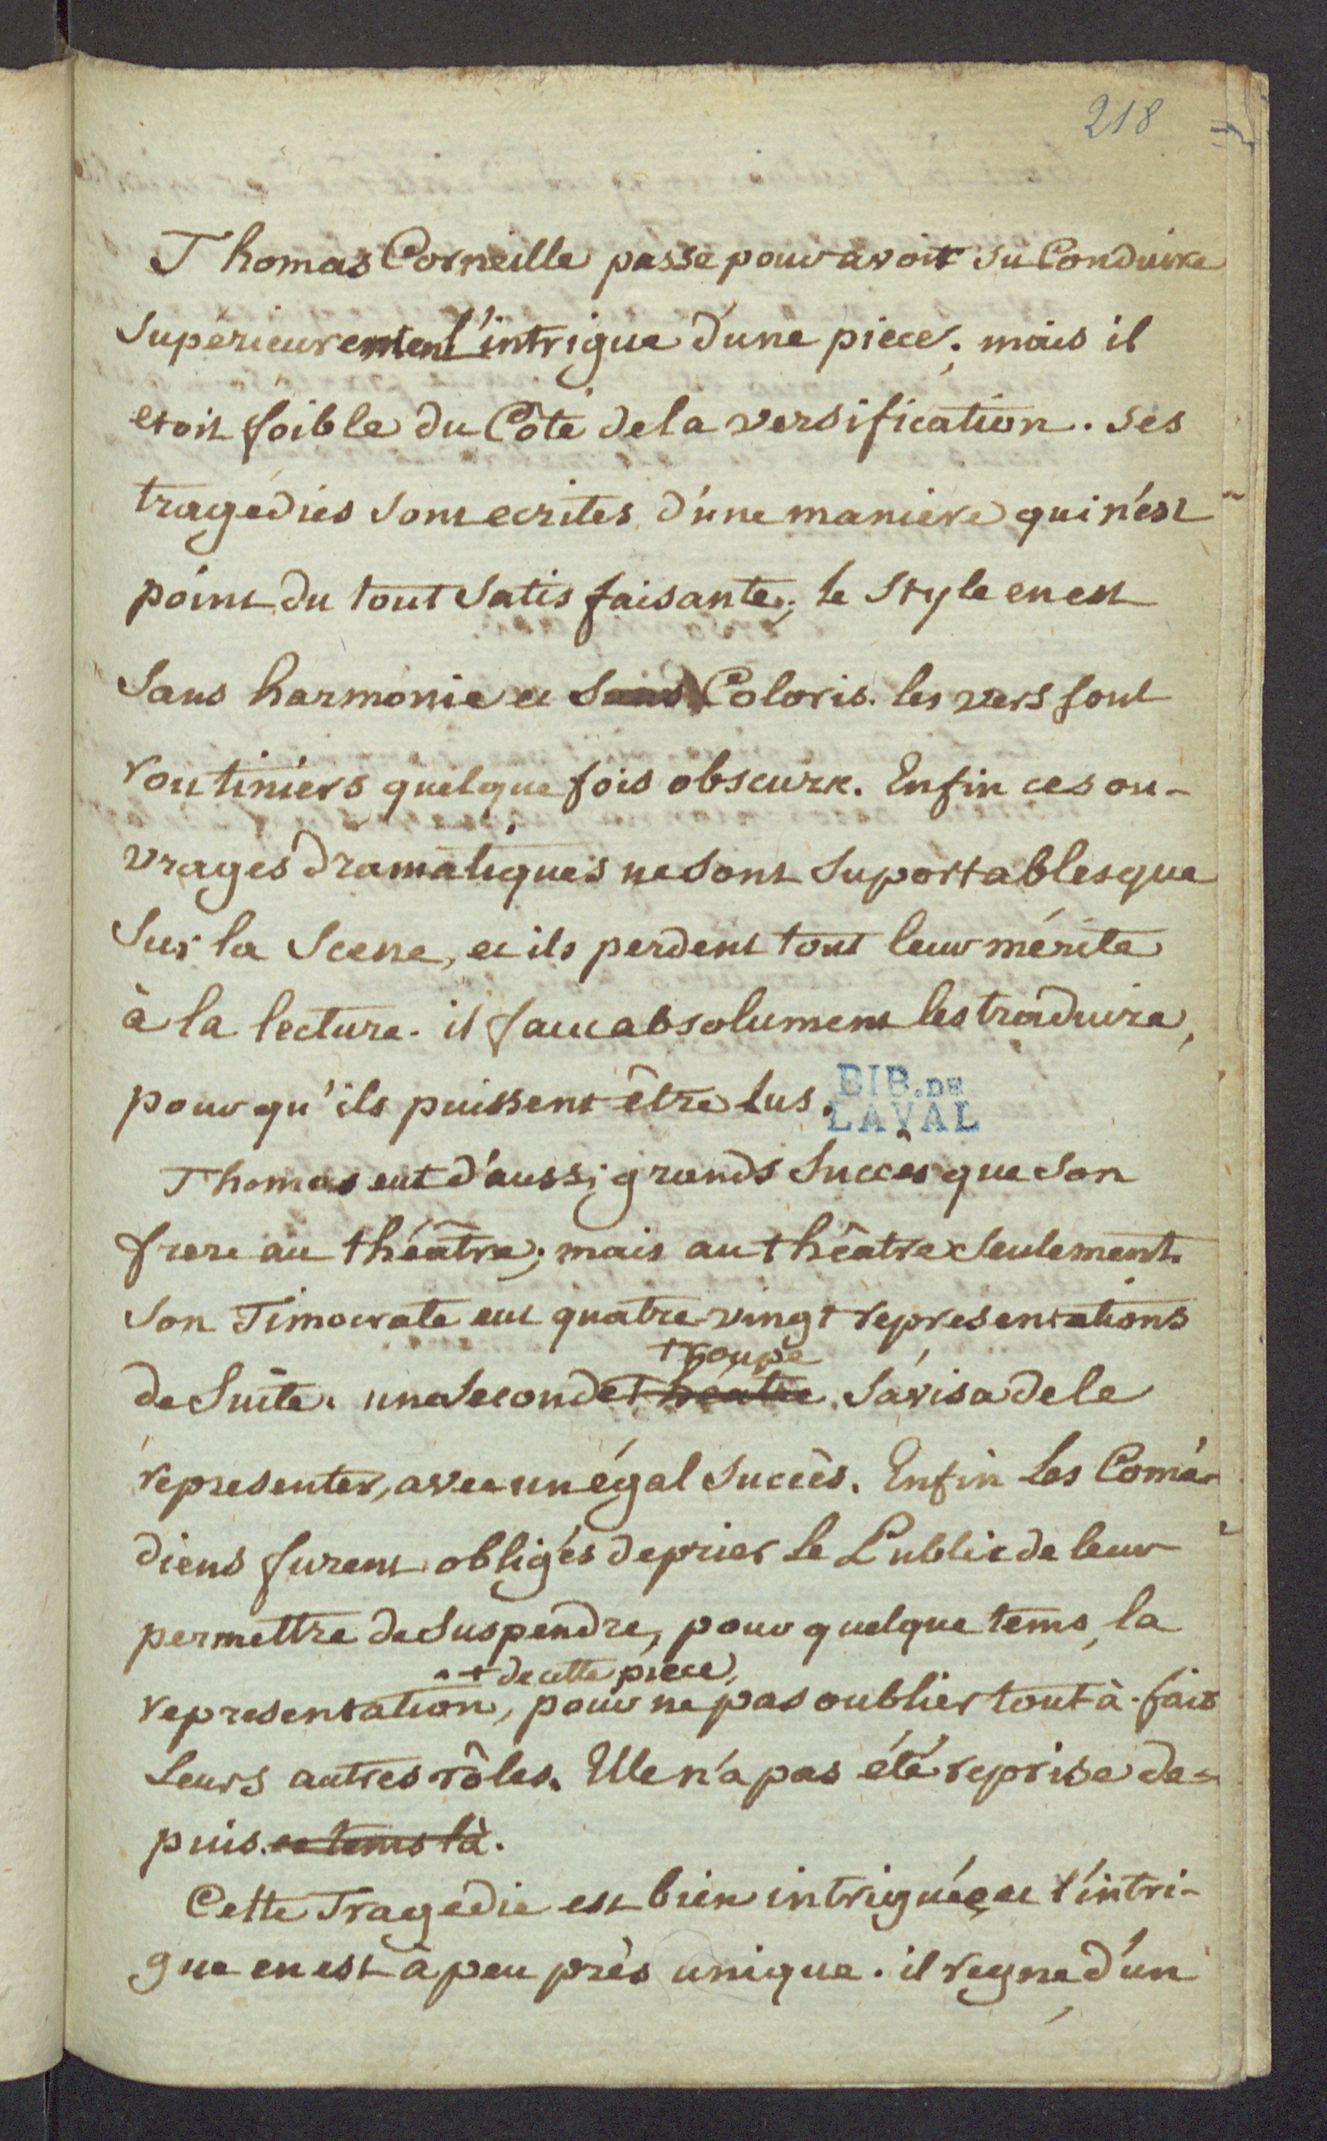 218
Thomas Corneille passe pour avoir su Conduire
supérieurement l'intrigue d'une piece; mais il
etoit foible du Côté de la versification. ses
tragedies sont ecrites d'une maniere qui n'est
point du tout satisfaisante; le style en est
sans harmonie et sans Coloris. les vers sont
routiniers quelque fois obscurs. Enfin ces ou-
vrages dramatiques ne sont suportables que
sur la Scene, et ils perdent tout leur mérite
à la lecture. il faut absolument les traduire,
pour qu'ils puissent être lus.
BIB. DE
LAVAL
Thomas eut d'aussi grands succès que son
frere au théâtre; mais au théâtre seulement.
son Timocrate eut quatre-vingt representations
troupe
de suite. une seconde théatre s'avisa de le
representer, avec un égal succès. Enfin les Comé-
diens furent obligés de prier le Public de leur
permettre de suspendre, pour quelque tems, la
+ de cette piece,
representation, pour ne pas oublier tout-à-fait
leurs autres rôles. Elle n'a pas été reprise de-
puis ce tems là.
Cette Tragedie est bien intriguée, et l'intri-
gue en est à peu près unique. il regne d'un